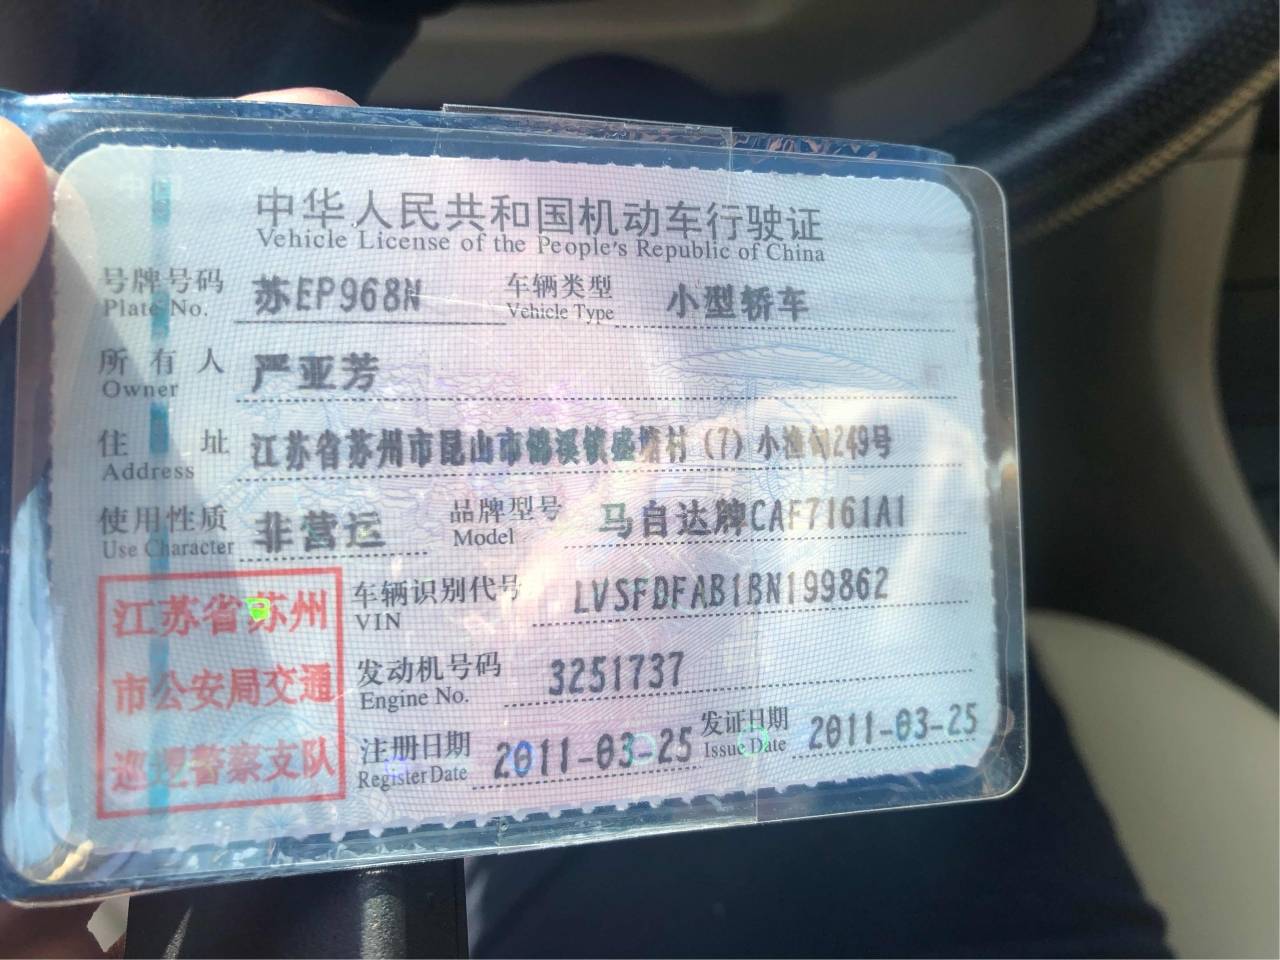 中华人民共和国机动车行驶证
Vehicle License of the People's Republic of China
号牌号码 苏EP968N 车辆类型 小型轿车
Plate No. Vehicle Type
所有人 严亚芳
Owner
住址 江苏省苏州市昆山市锦溪镇盛塘村（7）小渔甸249号
Address
使用性质 非营运 品牌型号 马自达牌CAF7161A1
Use Character Model
车辆识别代号 LVSFDFAB1BN199862
VIN
发动机号码 3251737
Engine No.
注册日期 2011-03-25 发证日期 2011-03-25
Register Date Issue Date
江苏省苏州
市公安局交通
巡逻警察支队